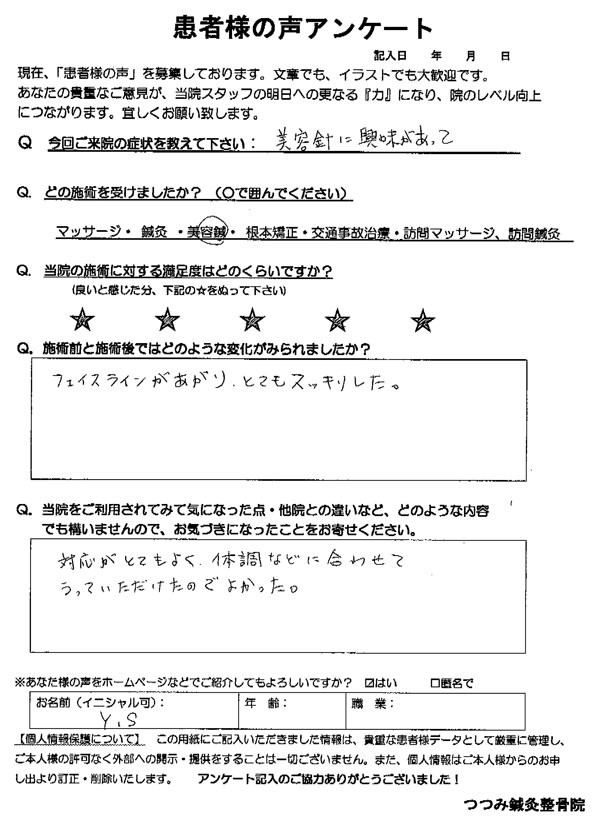 患者様の声アンケート
記入日　　年　　月　　日
現在、「患者様の声」を募集しております。文章でも、イラストでも大歓迎です。
あなたの貴重なご意見が、当院スタッフの明日への更なる『力』になり、院のレベル向上
につながります。宜しくお願い致します。
Q 今回ご来院の症状を教えて下さい： 美容針に興味があって
Q. どの施術を受けましたか？（〇で囲んでください）
マッサージ・ 鍼灸 ・美容鍼・ 根本矯正・交通事故治療・訪問マッサージ、訪問鍼灸
Q. 当院の施術に対する満足度はどのくらいですか？
（良いと感じた分、下記の☆をぬって下さい）
Q. 施術前と施術後ではどのような変化がみられましたか？
フェイスラインがあがり、とてもスッキリした。
Q. 当院をご利用されてみて気になった点・他院との違いなど、どのような内容
でも構いませんので、お気づきになったことをお寄せください。
対応がとてもよく、体調などに合わせて
うっていただけたのでよかった。
※あなた様の声をホームページなどでご紹介してもよろしいですか？ ☑はい　□匿名で
お名前（イニシャル可）： 年 齢： 職 業：
Y.S
【個人情報保護について】 この用紙にご記入いただきました情報は、貴重な患者様データとして厳重に管理し、
ご本人様の許可なく外部への開示・提供をすることは一切ございません。また、個人情報はご本人様からのお申
し出より訂正・削除いたします。　アンケート記入のご協力ありがとうございました！
つつみ鍼灸整骨院